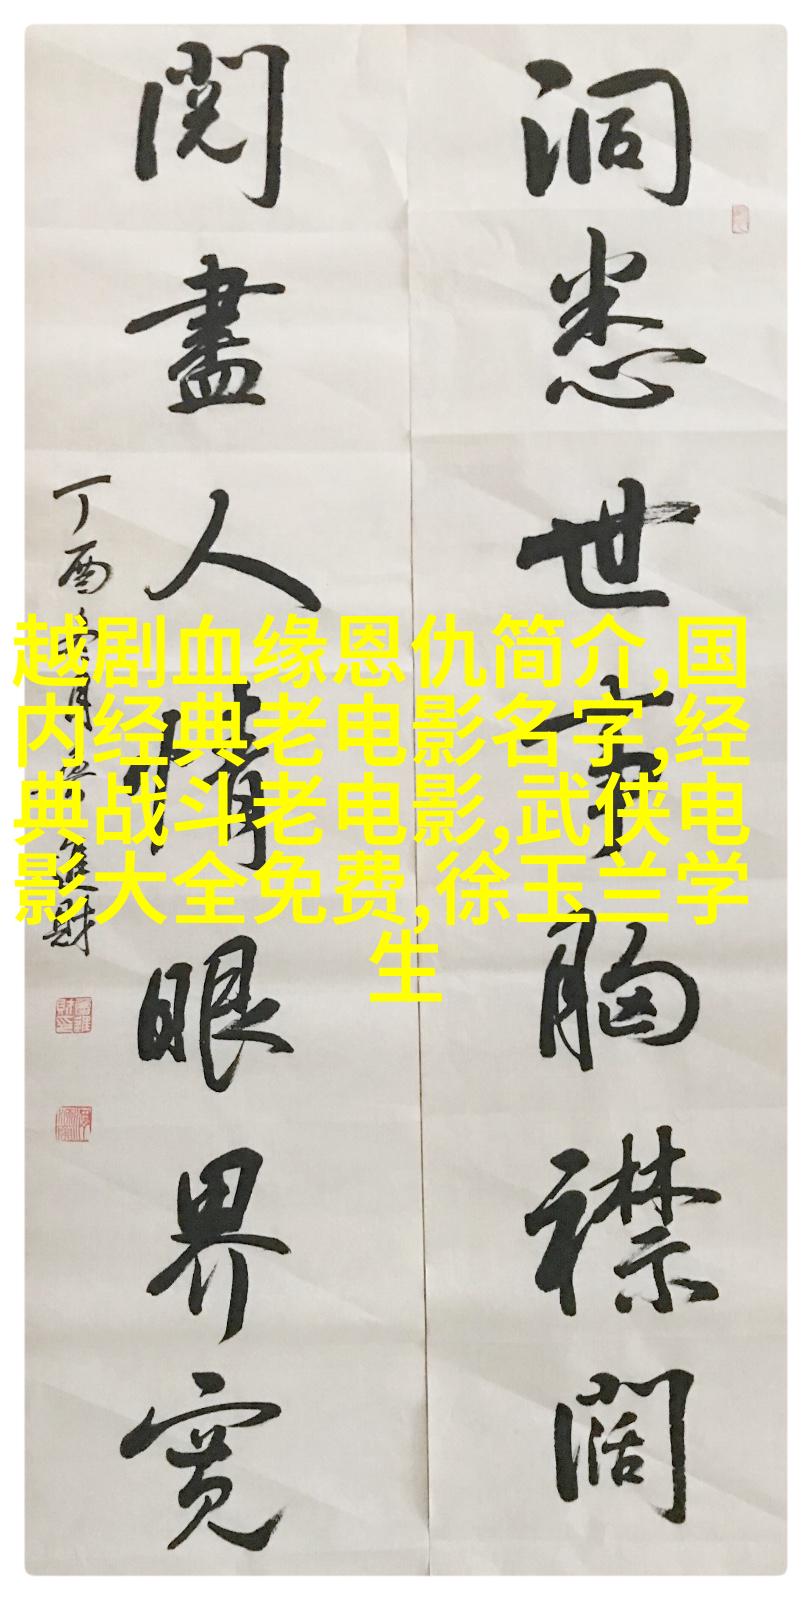 洞悉世事胸襟阔
閱盡人情眼界寬
丁酉
進財
越剧血缘恩仇简介,国
内经典老电影名字,经
典战斗老电影,武侠电
影大全免费,徐玉兰学
生